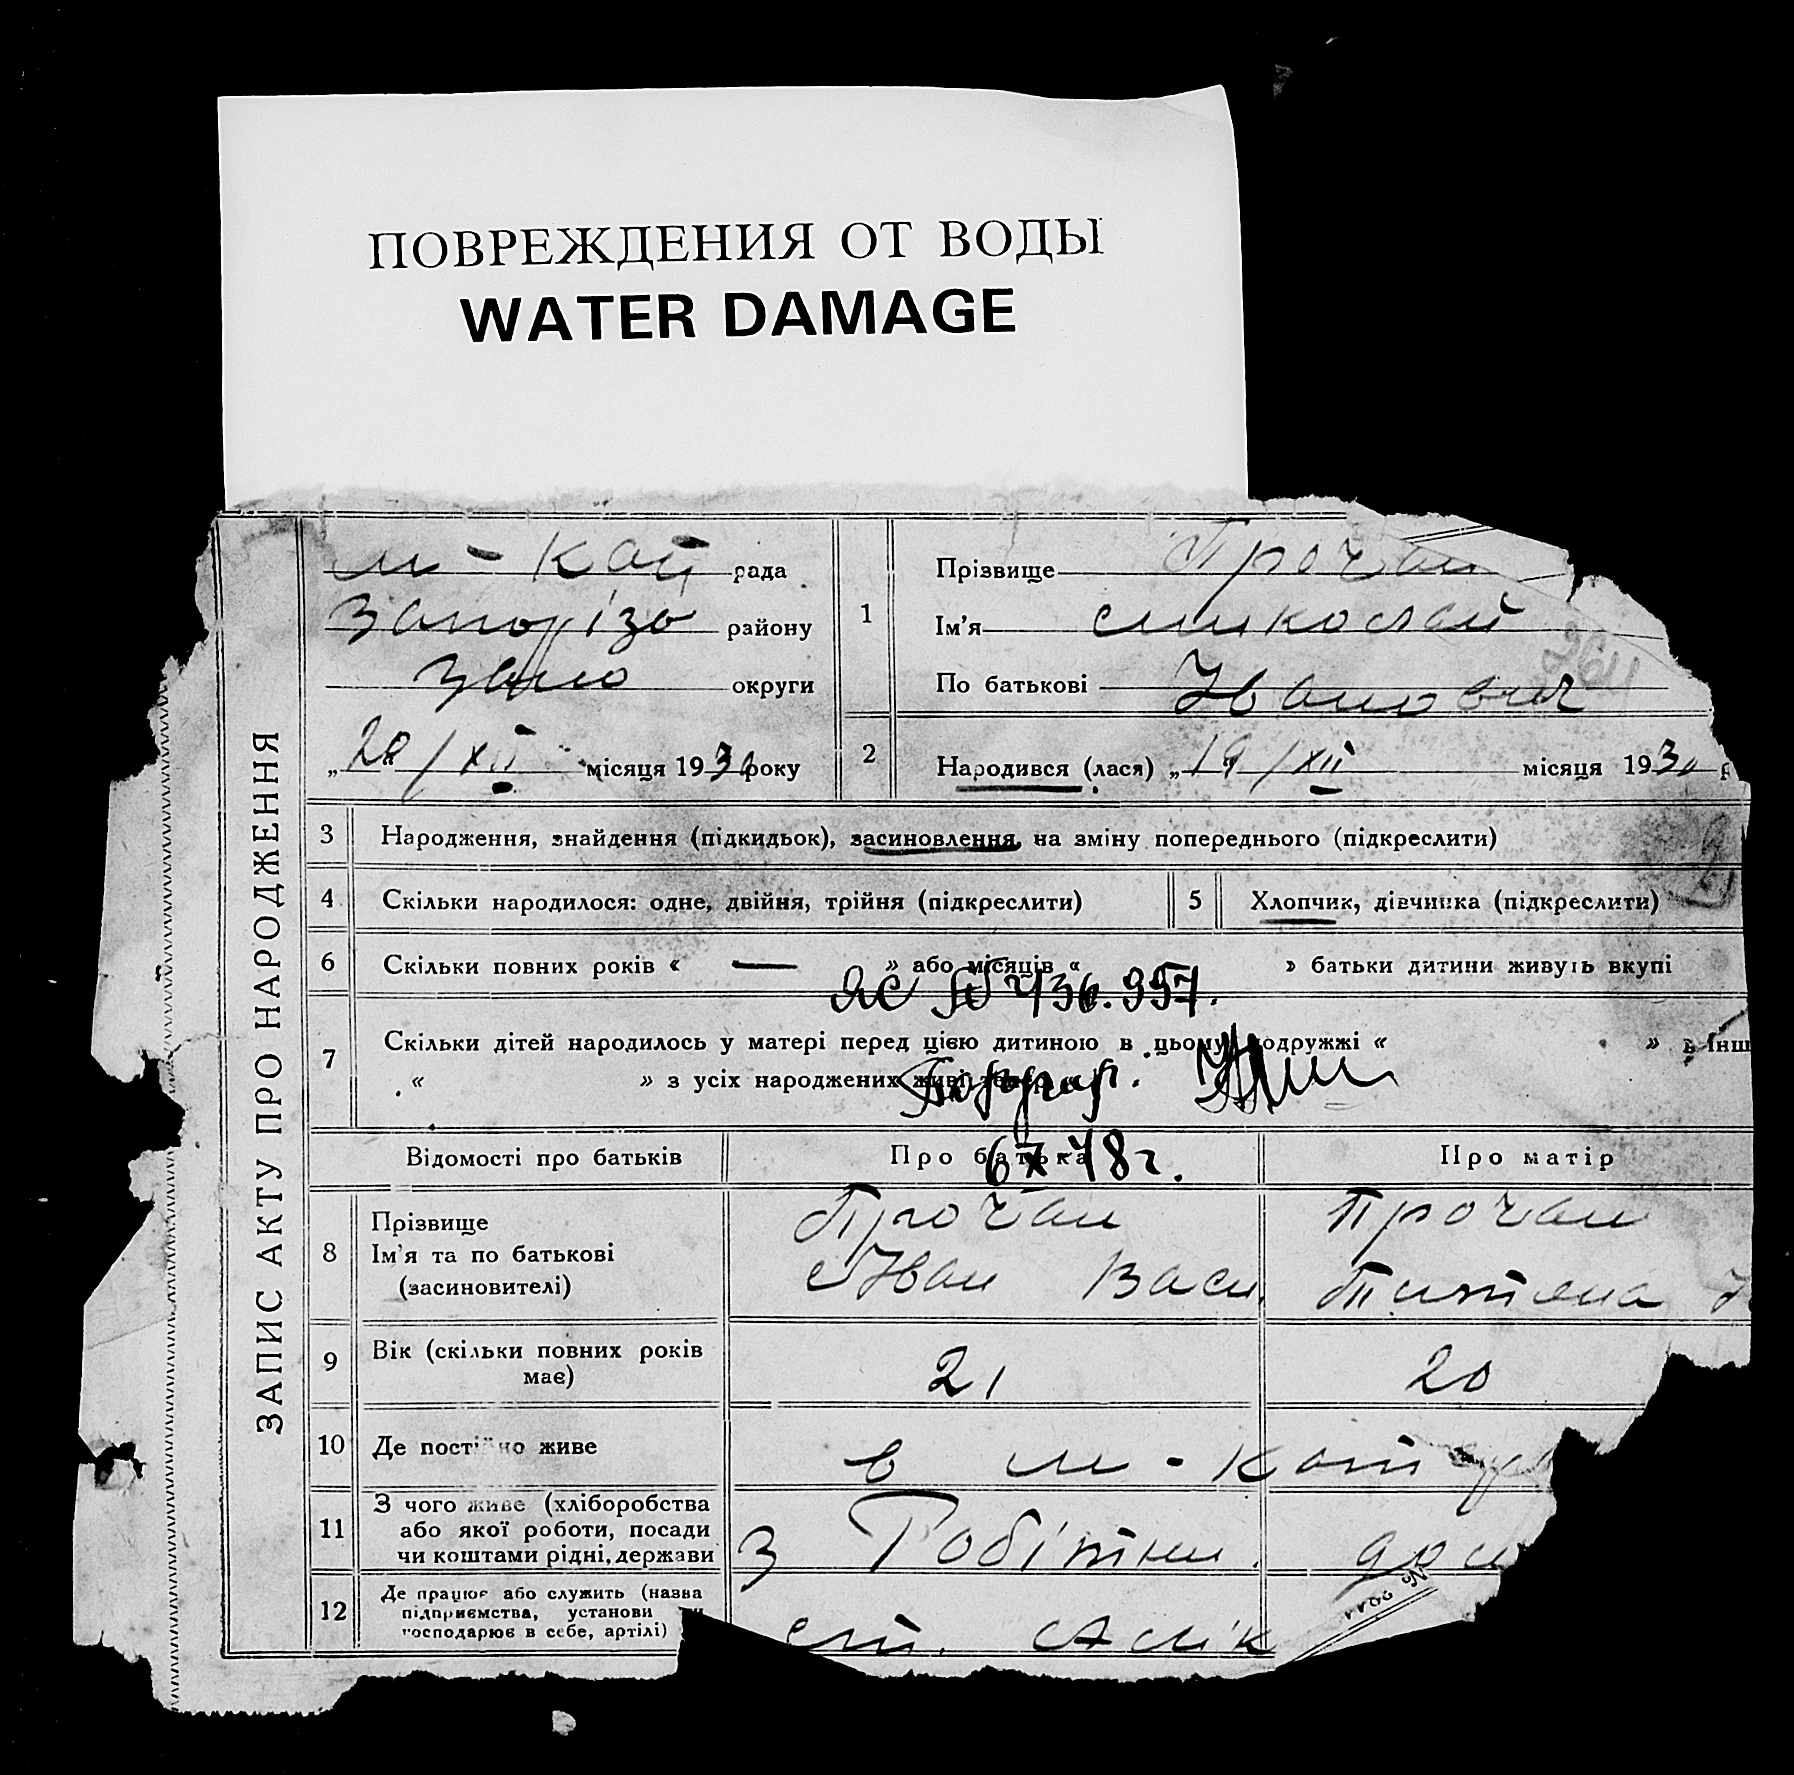 ПОВРЕЖДЕНИЯ ОТ ВОДЫ
WATER DAMAGE
ЗАПИС АКТУ ПРО НАРОДЖЕННЯ
м-кой рада
Запорізь району
Запо округи
„28/XII місяця 1930 року
1
Прізвище Прочан
Ім’я Миколай
По батькові Иванович
2
Народився (лася) „19/XII місяця 1930 р
3 Народження, знайдення (підкидьок), засиновлення, на зміну попереднього (підкреслити)
4 Скільки народилося: одне, двійня, трійня (підкреслити)
5 Хлопчик, дівчинка (підкреслити)
6 Скільки повних років « — » або місяців « » батьки дитини живуть вкупі
ЯС № 436.957.
7 Скільки дітей народилось у матері перед цією дитиною в цьому подружжі « » в інш
« » з усіх народжених живі тепер
6 X 48 г.
Відомості про батьків
Про батька
Про матір
8 Прізвище
Ім’я та по батькові
(засиновителі)
Прочан
Иван Васи.
Прочан
Татяна
9 Вік (скільки повних років
має)
21
20
10 Де постійно живе
в м-кот
11 З чого живе (хліборобства
або якої роботи, посади
чи коштами рідні, держави
З Робітни.
дом
12 Де працює або служить (назва
підприємства, установи
господарює в себе, артілі)